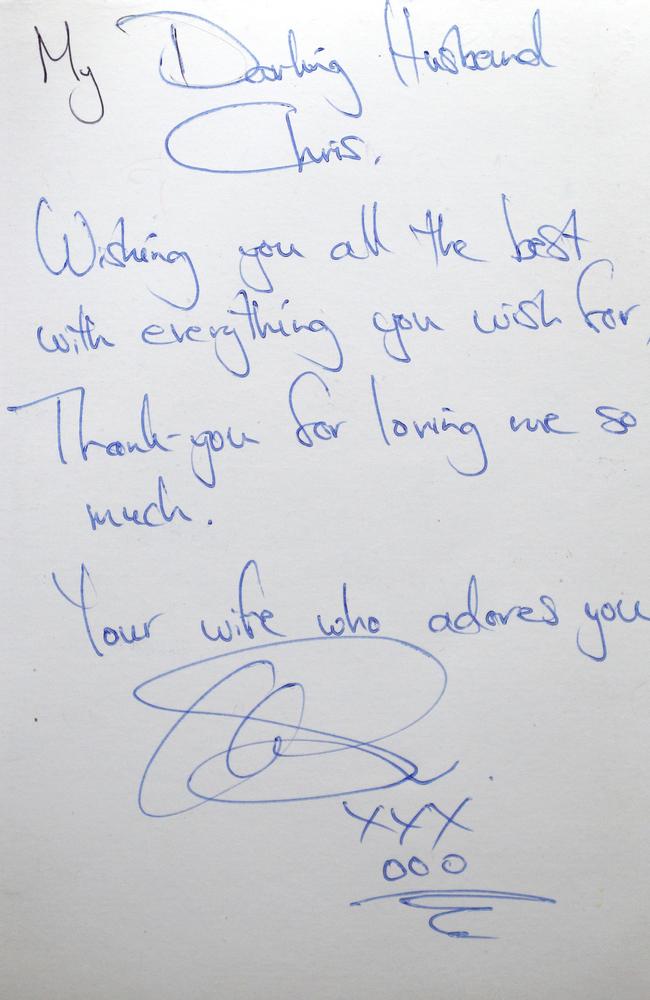 My Darling Husband
Chris.
Wishing you all the best
with everything you wish for,
Thank-you for loving me so
much.
Your wife who adores you
XXX
OOO